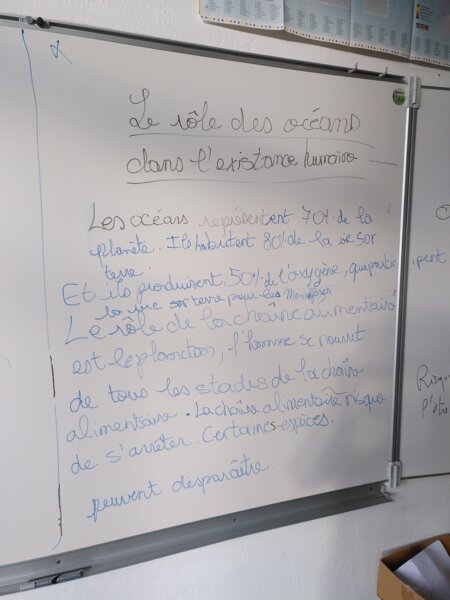 Le rôle des océans
dans l'existance humaine
Les océans représentent 70% de la
planète. Ils habitent 80% de la vie sor
terre.
Et ils produisent 50% de l'oxygène, qui
la vie sor terre pour les Mammifères
Le rôle de la chaîne alimentaire
est le plancton, l'homme se nourit
de tous les stades de la chaîne
alimentaire. La chaîne alimentaire risque
de s'arrêter. Certaines espèces.
peuvent desparaître.
Risq
l'êtr